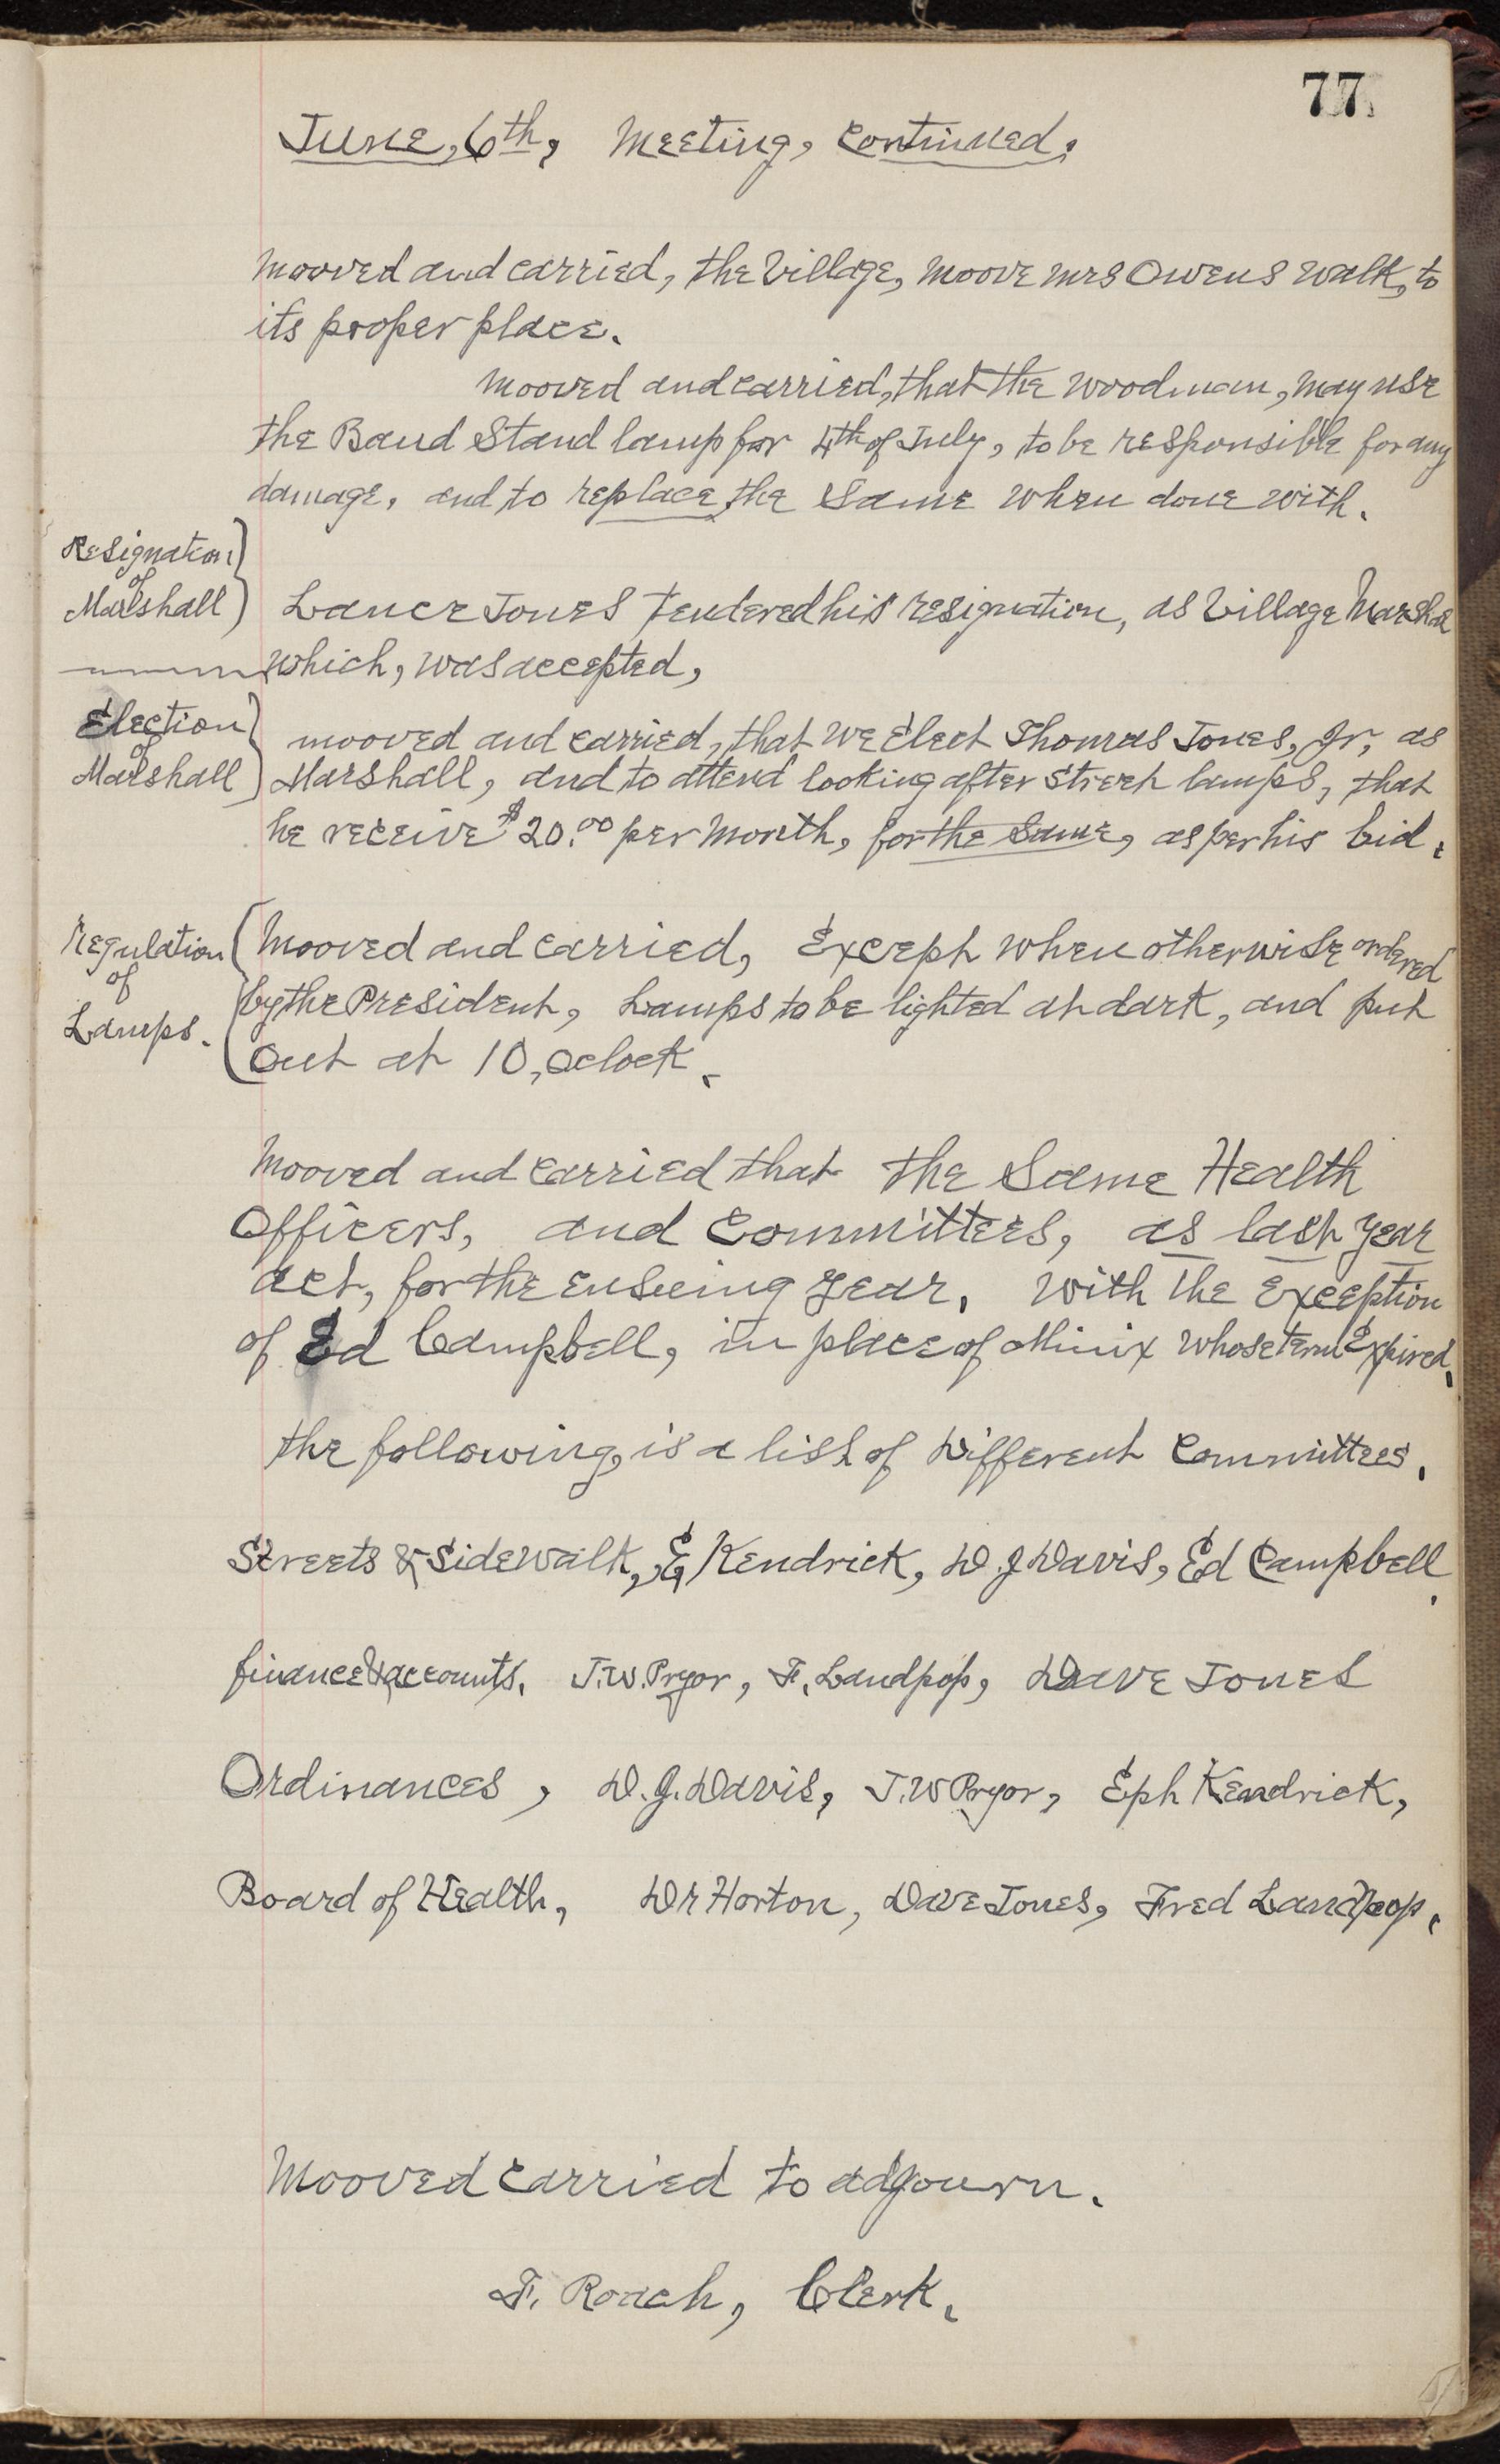 77.
June, 6th, Meeting, Continued.
Mooved and carried, the Village, moove mrs Owens walk, to
its proper place.
Mooved and carried, that the woodman, may use
the Band Stand lamp for 4th of July, to be responsible for any
damage, and to replace, the Same when done with.
Resignation
of
Marshall
Lance Jones tendered his resignation, as Village Marshall
which, was accepted,
Election
of
Marshall
mooved and carried, that we Elect Thomas Jones, Jr, as
Marshall, and to attend looking after Street lamps, that
he receive $20.00 per Month, for the Same, as per his bid.
Regulation
of
Lamps.
Mooved and carried, Except when otherwise ordered
by the President, Lamps to be lighted at dark, and put
Out at 10, Oclock.
Mooved and carried that the Same Health
Officers, and Committees, as last year
act, for the ensueing year, with the Exception
of Ed Campbell, in place of Minix whose term Expired.
the following, is a list of Different Committees.
Streets & Sidewalk, E Kendrick, D. J Davis, Ed Campbell.
finance & accounts. J. W. Pryor, F. Landpop, Dave Jones
Ordinances, D. J. Davis, J. W Pryor, Eph Kendrick,
Board of Health, Dr Horton, Dave Jones, Fred Landpop.
Mooved carried to adjourn.
F. Roach, Clerk.